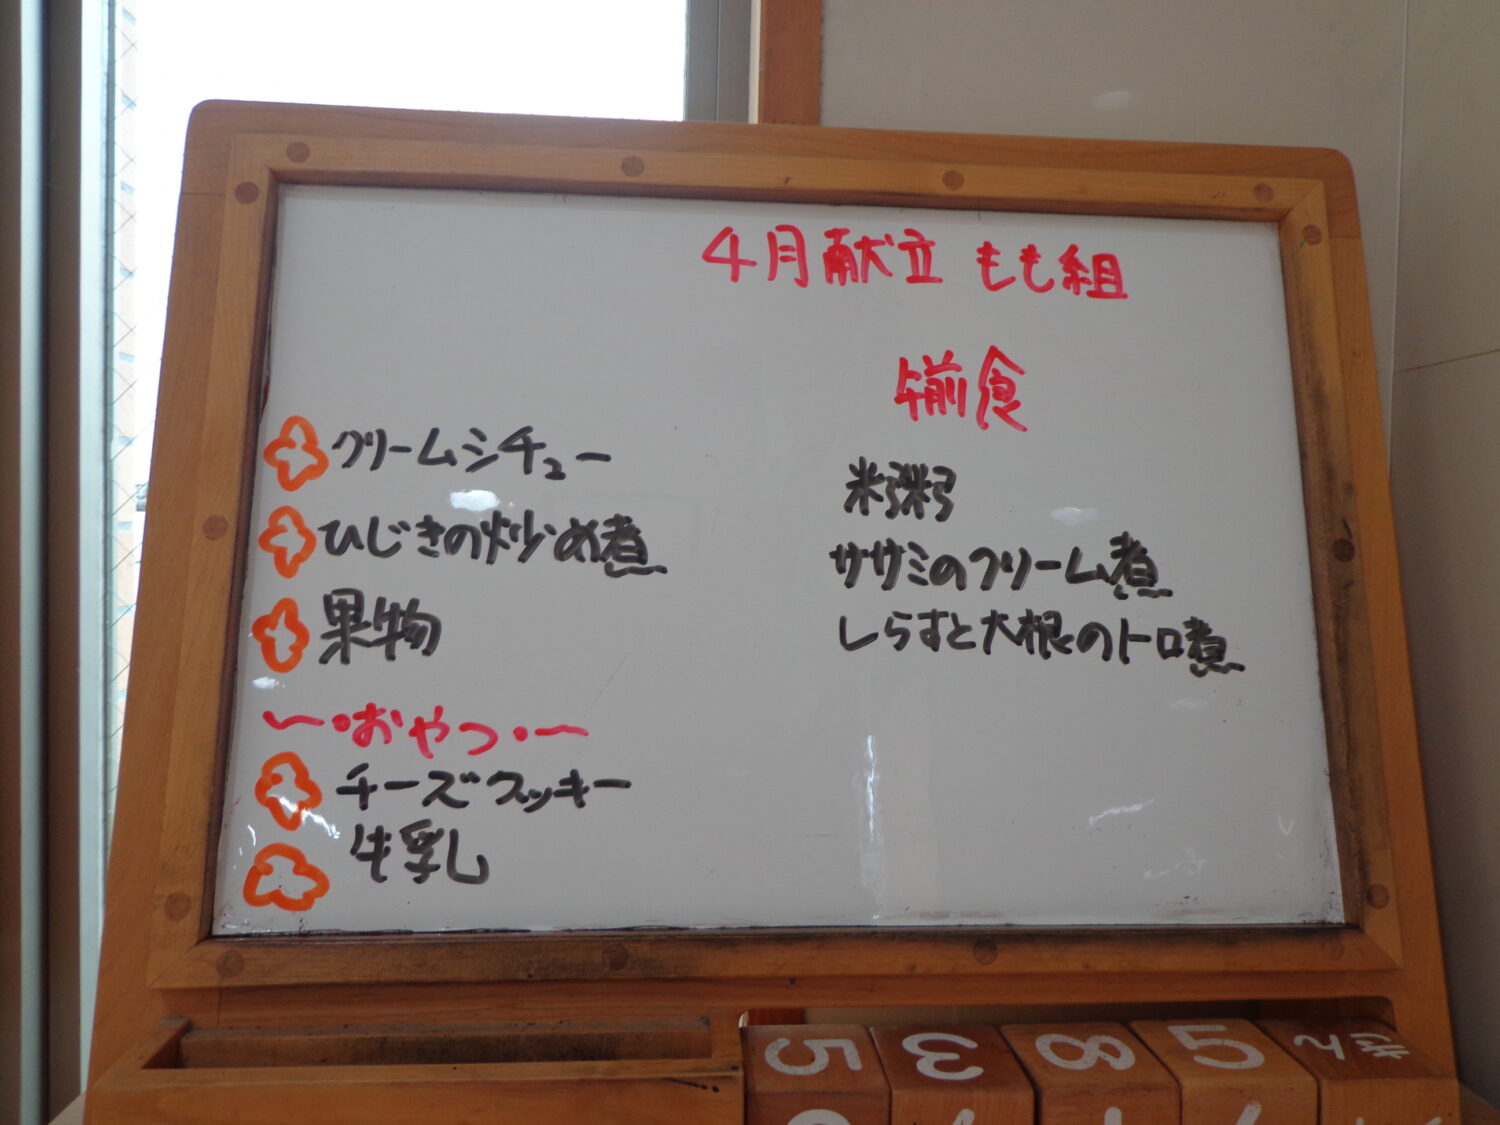 4月献立 もも組
クリームシチュー
ひじきの炒め煮
果物
〜・おやつ・〜
チーズクッキー
牛乳
午前食
米粥
ササミのクリーム煮
しらすと大根のトロ煮
5 3 8 5